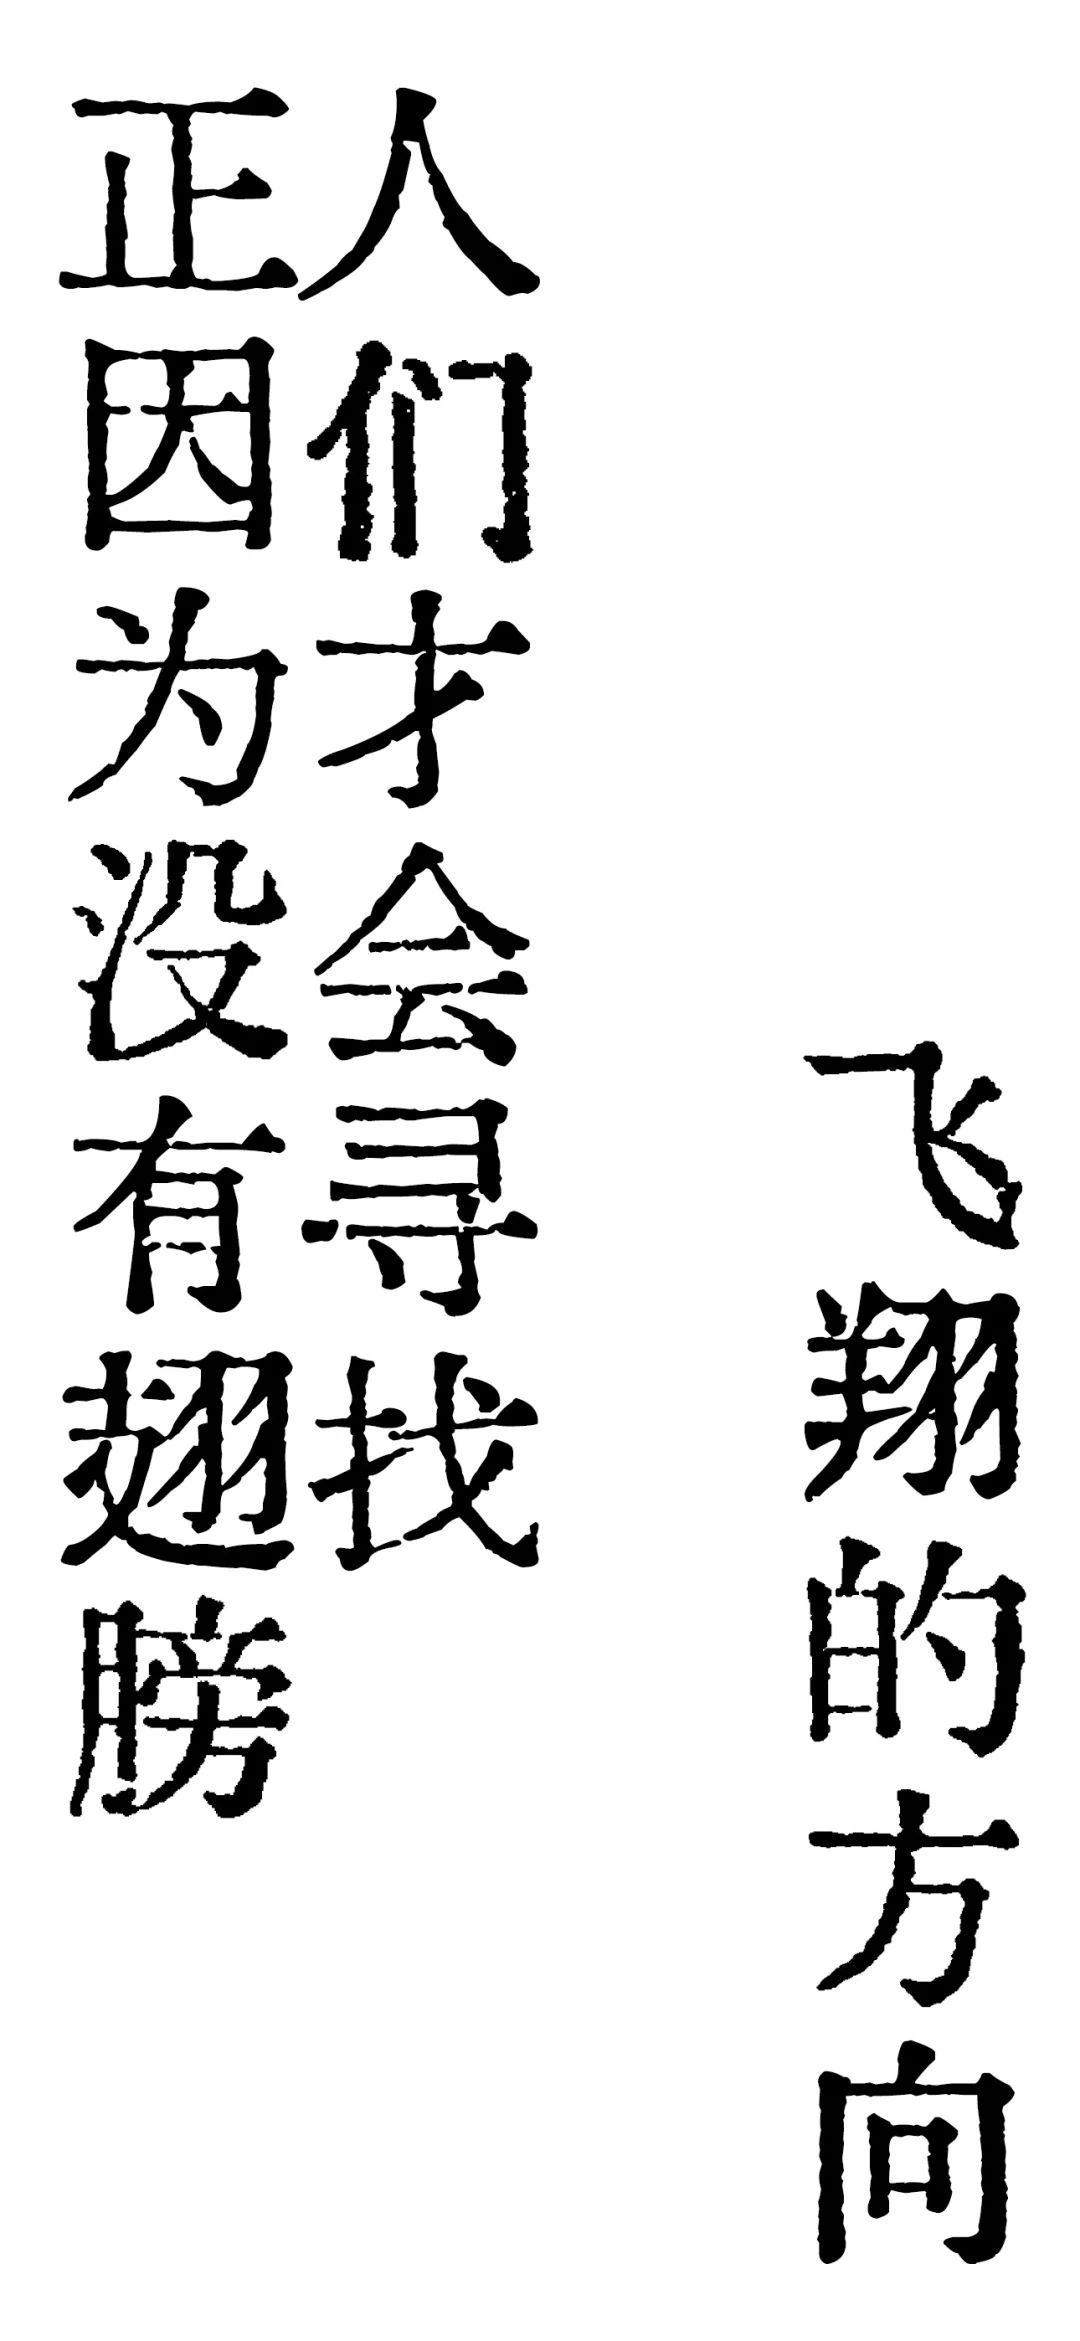 正因为没有翅膀
人们才会寻找
飞翔的方向